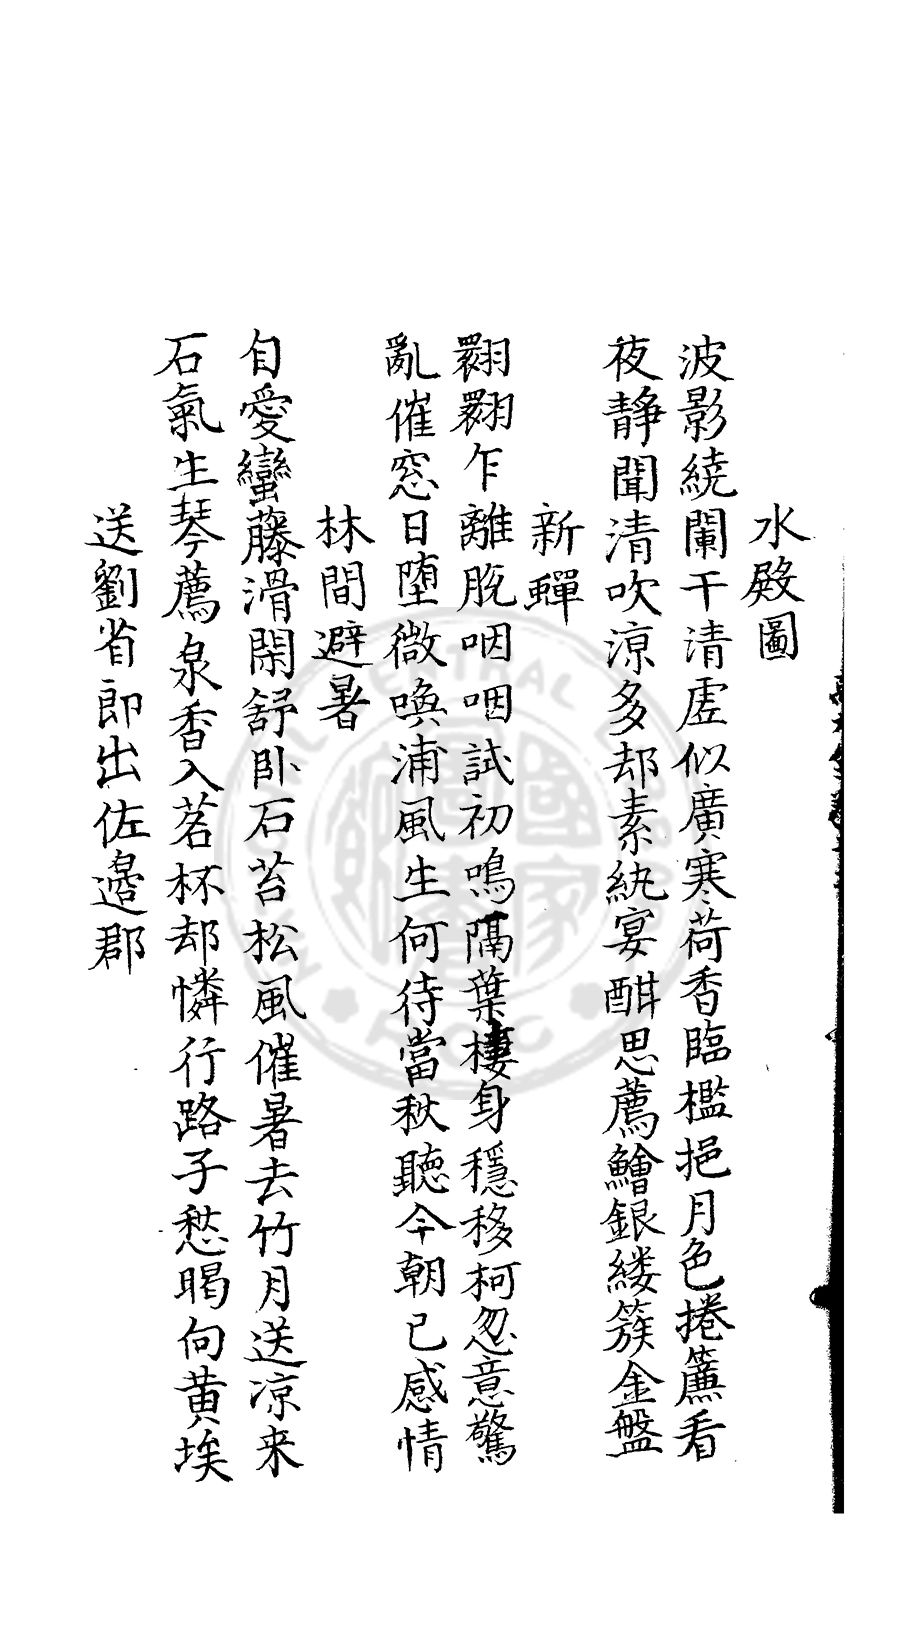 水殿圖
波影繞闌干清虛似廣寒荷香臨檻挹月色捲簾看
夜靜聞清吹涼多却素紈宴酣思薦鱠銀縷簇金盤
新蟬
翾翾乍離脫咽咽試初鳴隔葉棲身穩移柯忽意驚
亂催窓日墮微喚浦風生何待當秋聽今朝已感情
林間避暑
自愛蠻藤滑閑舒卧石苔松風催暑去竹月送凉来
石氣生琴薦泉香入茗杯却憐行路子愁暍向黄埃
送劉省郎出佐邊郡